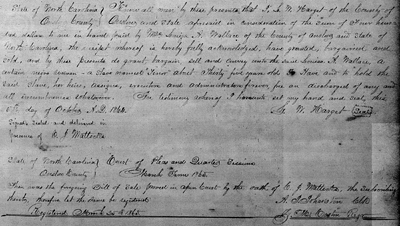 State of North Carolina) Know all men by these presents that I, M. W. Harget of the County of
County) Anson and State aforesaid in consideration of the sum of Four hundred
dollars to me in hand paid by Mrs Louisa A. Wallace of the County of Anson and State of
North Carolina, the receipt whereof is hereby fully acknowledged, have granted, bargained and
sold, and by these presents do grant, bargain, sell and convey unto the said Louisa A. Wallace, a
certain negro woman - a slave named about Thirty five years old To Have and to hold the
said slave, her heirs, assigns, executors and administrators forever, free an discharged of any and
all incumbrances whatsoever. In testimony whereof I hereunto set my hand and seal, this
day of October A.D. 1864.
M. W. Harget (Seal)
Signed Sealed and delivered in
presence of
State of North Carolina) Court of Pleas and Quarter Sessions
Anson County) March Term 1865.
Then was the foregoing Bill of Sale proved in open Court by the oath of the Subscribing
thereto, therefore let the same be registered.
Clk
Registered March 1865.